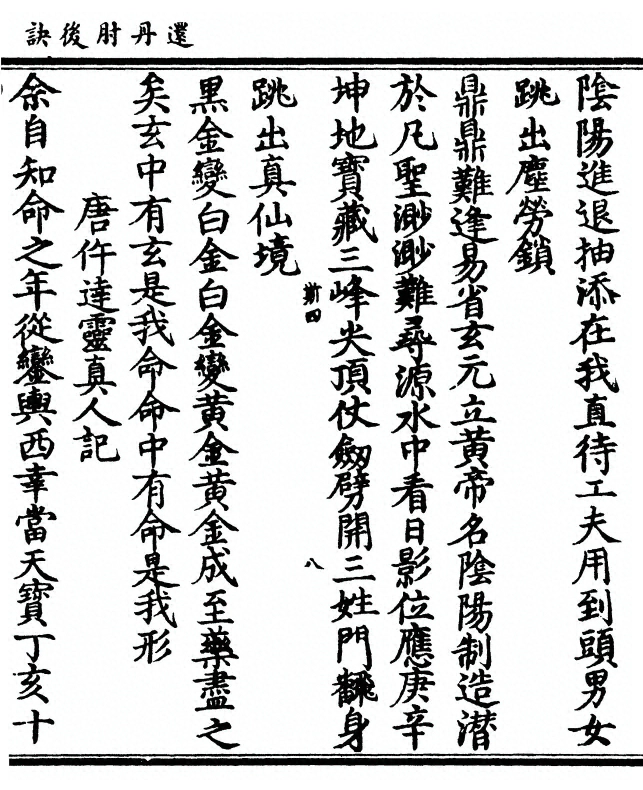 還丹肘後訣
陰陽進退抽添在我直待工夫用到頭男女
跳出塵勞鎖
鼎鼎難逢易省玄元立黃帝名陰陽制造潜
於凡聖渺渺難尋源水中看日影位應庚辛
坤地寶藏三峰尖頂仗劔劈開三姓門飜身
斯四
八
跳出真仙境
黑金變白金白金變黃金黃金成至藥盡之
矣玄中有玄是我命命中有命是我形
唐仵達靈真人記
余自知命之年從鑾輿西幸當天寶丁亥十